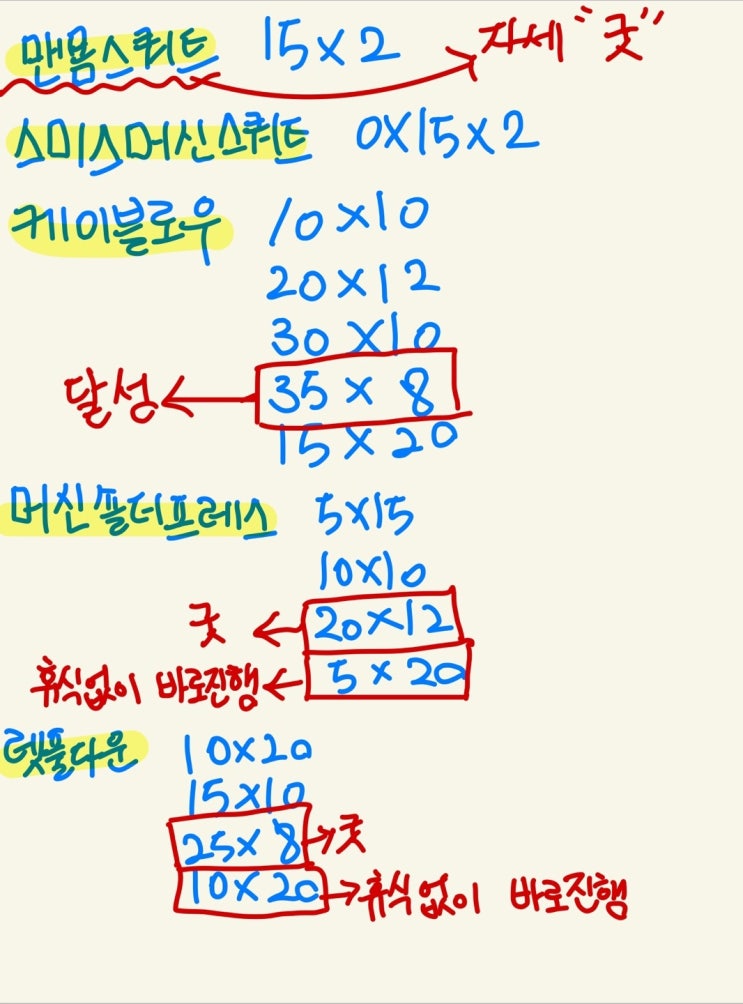 맨몸스쿼트 15×2 자세 "굿"
스미스머신스쿼트 0×15×2
케이블로우 10×10
20×12
30×10
달성 35×8
15×20
머신숄더프레스 5×15
10×10
굿 20×12
휴식없이 바로진행 5×20
렛풀다운 10×20
15×10
25×8 굿
10×20 휴식없이 바로진행